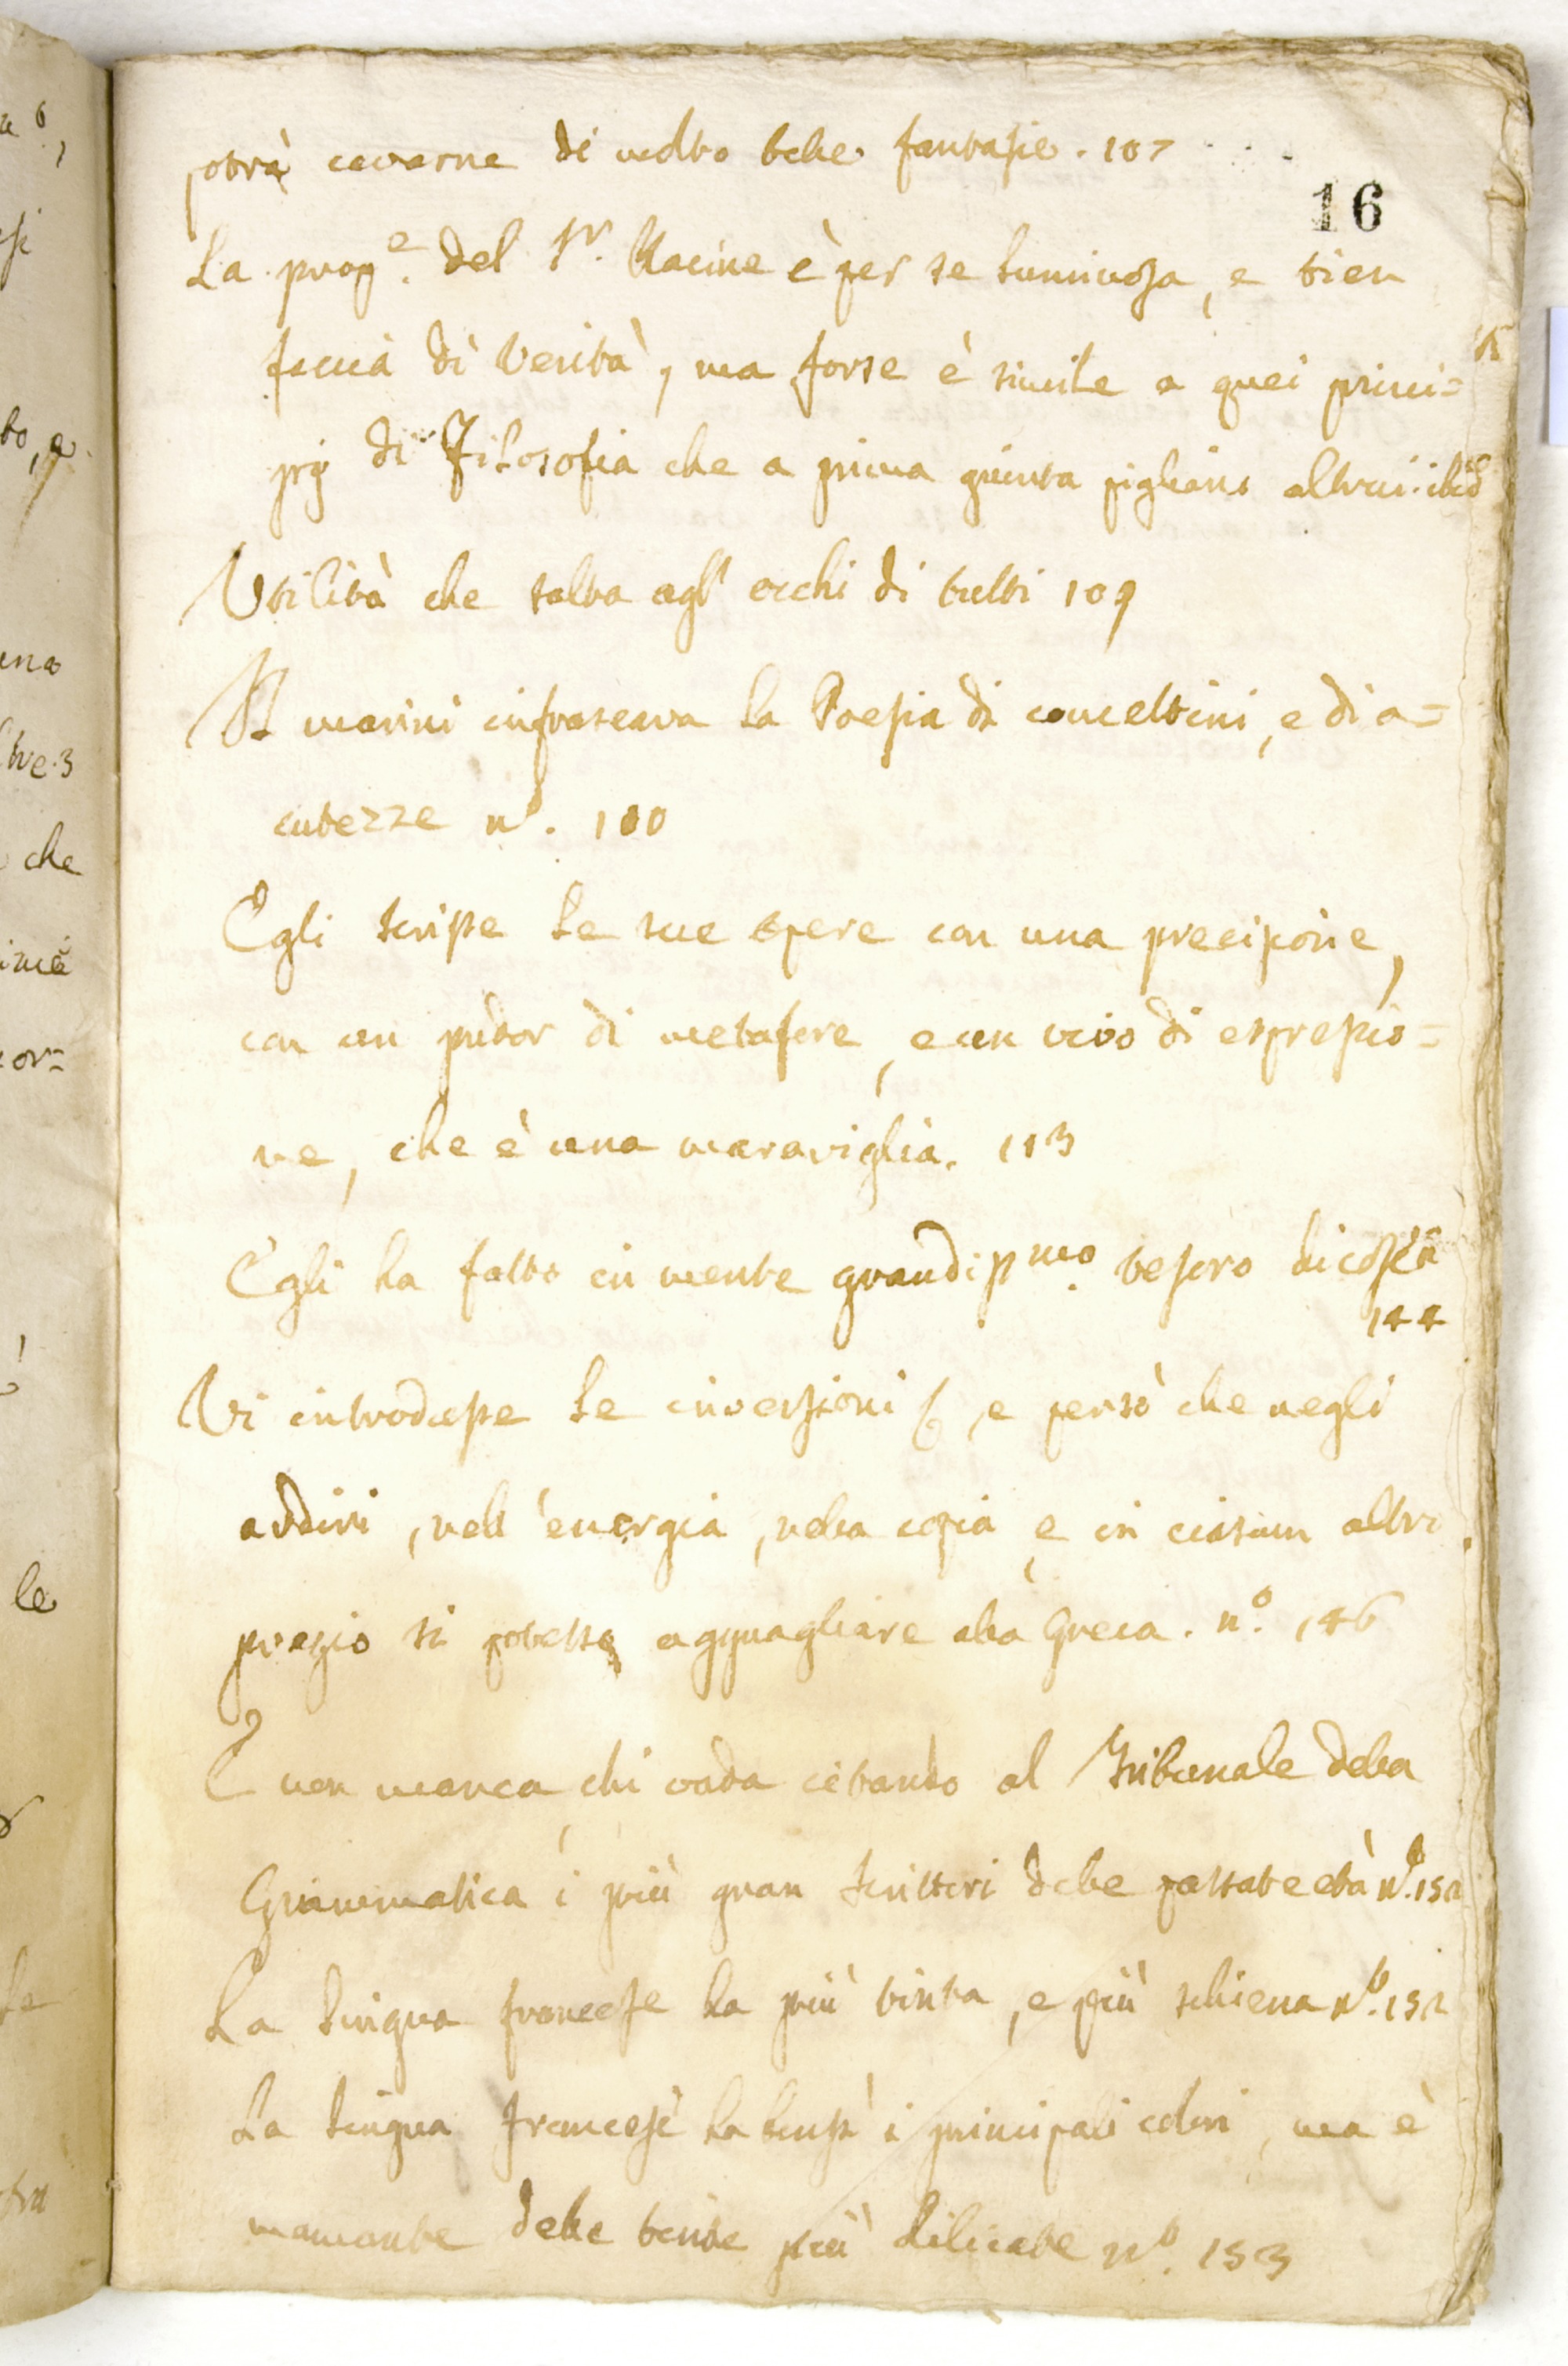 potrà cavarne di molto belle fantasie. 107
16
La prop.e del Sr. Racine è per se luminosa, e tien
faccia di verità, ma forse è simile a quei princi=
pij di Filosofia che a prima giunta pigliano altrui. ibid
Utilità che salta agl' occhi di tutti 109
Il marini infrascava la Poesia di concettini, e di a=
cutezze no. 110
Egli scrisse le sue opere con una precisione,
con un pudor di metafore, e un vivo di espressio=
ne, che è una maraviglia. 113
Egli ha fatto in mente grandissmo. tesoro di cose n
144
Vi introdusse le inversioni, e pensò che negli
ardiri, nell'energia, nella copia, e in ciascun altro
pregio si potesse agguagliare alla Greca. n.o 146
E non manca chi vada citando al Tribunale della
Grammatica i più gran scrittori delle passate età no. 152
La lingua francese ha più tinta, e più schiena no. 152
La lingua francese ha bensì i principali colori, ma è
mancante delle tinte più dilicate no. 153